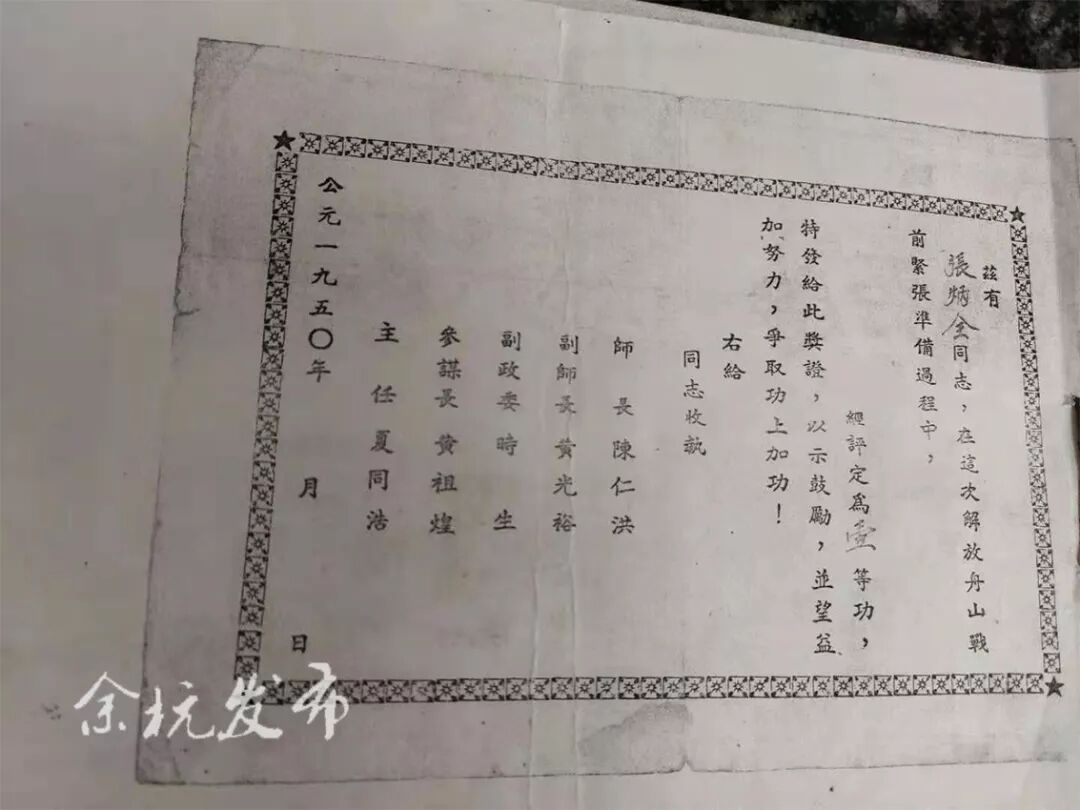 茲有
張炳全同志，在這次解放舟山戰
前緊張準備過程中，
經評定為壹等功，
特發給此獎證，以示鼓勵，並望益
加努力，爭取功上加功！
右給
同志收執
師長陳仁洪
副師長黄光裕
副政委時生
參謀長黄祖煌
主任夏同浩
公元一九五〇年月日
余杭发布